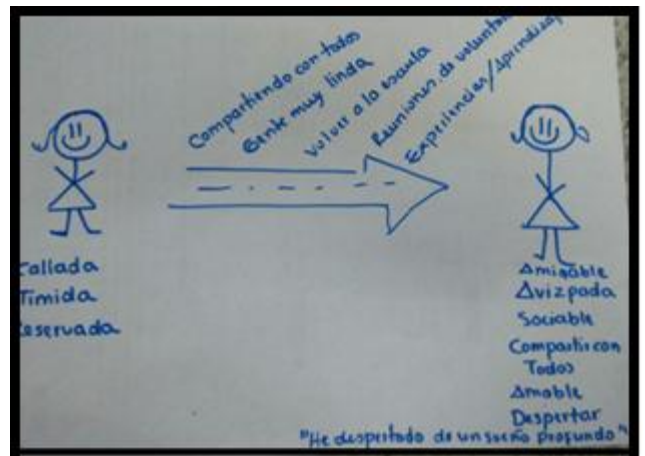 Compartiendo con todos
Gente muy linda
Volver a la escuela
Reuniones de volunta
Experiencias/Aprendizaj
Callada
Timida
eservada
Amigable
Avizpada
Sociable
Compartir con
Todos
Amable
Despertar
"He despertado de un sueño profundo"